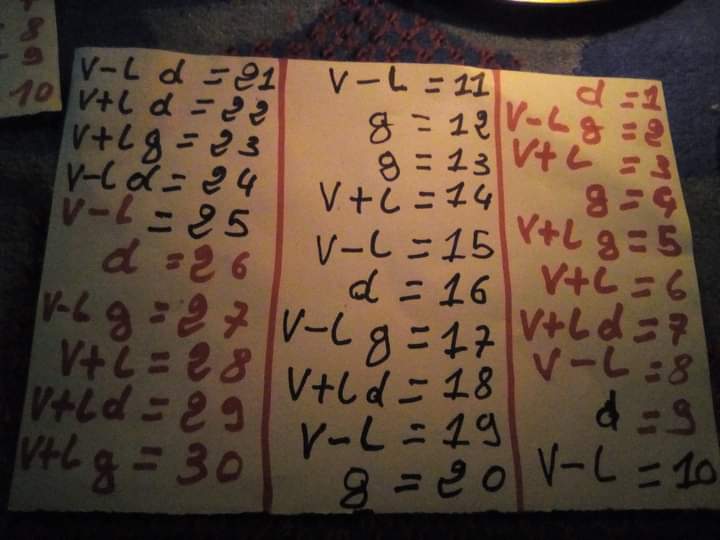 8
9
10
V-L d = 21
V+L d = 22
V+L g = 23
V-L d = 24
V-L = 25
d = 26
V-L g = 27
V+L = 28
V+L d = 29
V+L g = 30
V-L = 11
g = 12
g = 13
V+L = 14
V-L = 15
d = 16
V-L g = 17
V+L d = 18
V-L = 19
g = 20
d = 1
V-L g = 2
V+L = 3
g = 4
V+L g = 5
V+L = 6
V+L d = 7
V-L = 8
d = 9
V-L = 10